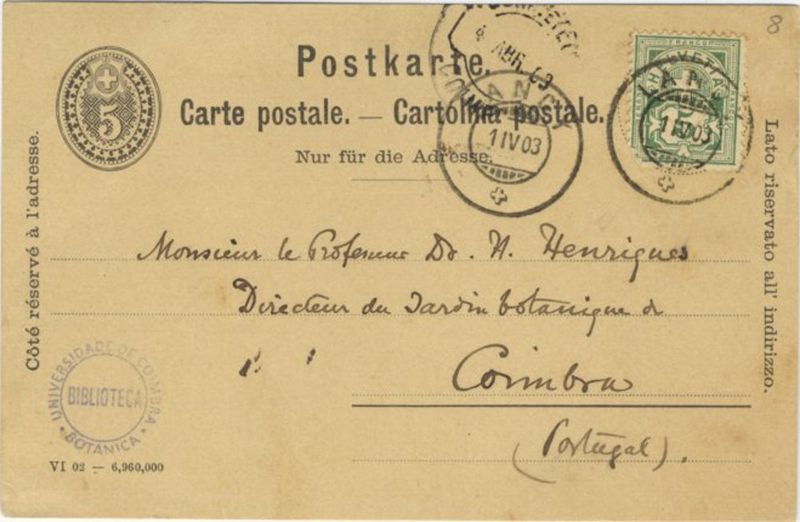 8
Postkarte.
Carte postale. — Cartolina postale.
Nur für die Adresse.
5
4 ABR. 03
LANCY
1 IV 03
HELVETIA
FRANCO
5
LANCY
1 IV 03
Côté réservé à l'adresse.
Lato riservato all' indirizzo.
Monsieur le Professeur Dr. H. Henriques
Directeur du Jardin botanique de
Coimbra
(Portugal).
UNIVERSIDADE DE COIMBRA
BIBLIOTECA
BOTANICA
VI 02 — 6,960,000